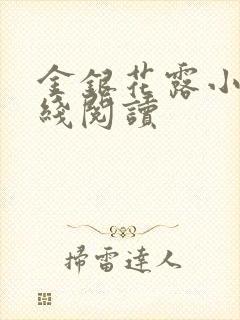 金銀花露小
綫閱讀
掃雷達人